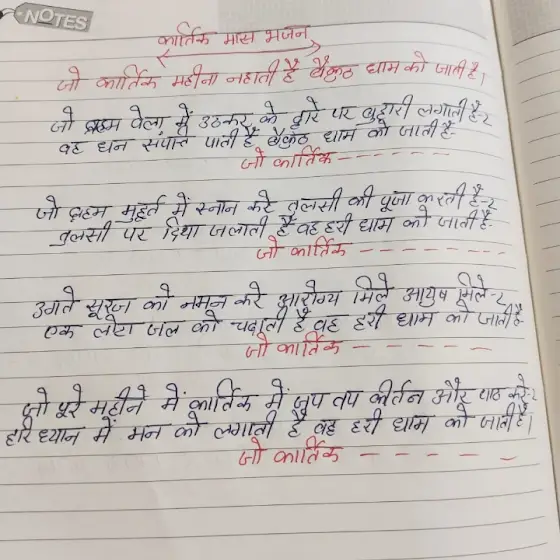 NOTES
कार्तिक मास भजन
जो कार्तिक महीना नहाती है बैकुंठ धाम को जाती है।
जो ब्रहम वेला में उठकर के द्वारे पर बुहारी लगाती है-२
वह धन संपत्ति पाती है बैकुंठ धाम को जाती है-
जो कार्तिक - - - - - - -
जो ब्रहम मुहूर्त में स्नान करे तुलसी की पूजा करती है-२
तुलसी पर दिया जलाती है वह हरी धाम को जाती है-
जो कार्तिक - - - - - - -
उगते सूरज को नमन करे आरोग्य मिले आयुष मिले-२
एक लोटा जल को चढ़ाती है वह हरी धाम को जाती है-
जो कार्तिक - - - - - -
जो पूरे महीने में कार्तिक में जप तप कीर्तन और पाठ करे-२
हरि ध्यान में मन को लगाती है वह हरी धाम को जाती है।
जो कार्तिक - - - - - -